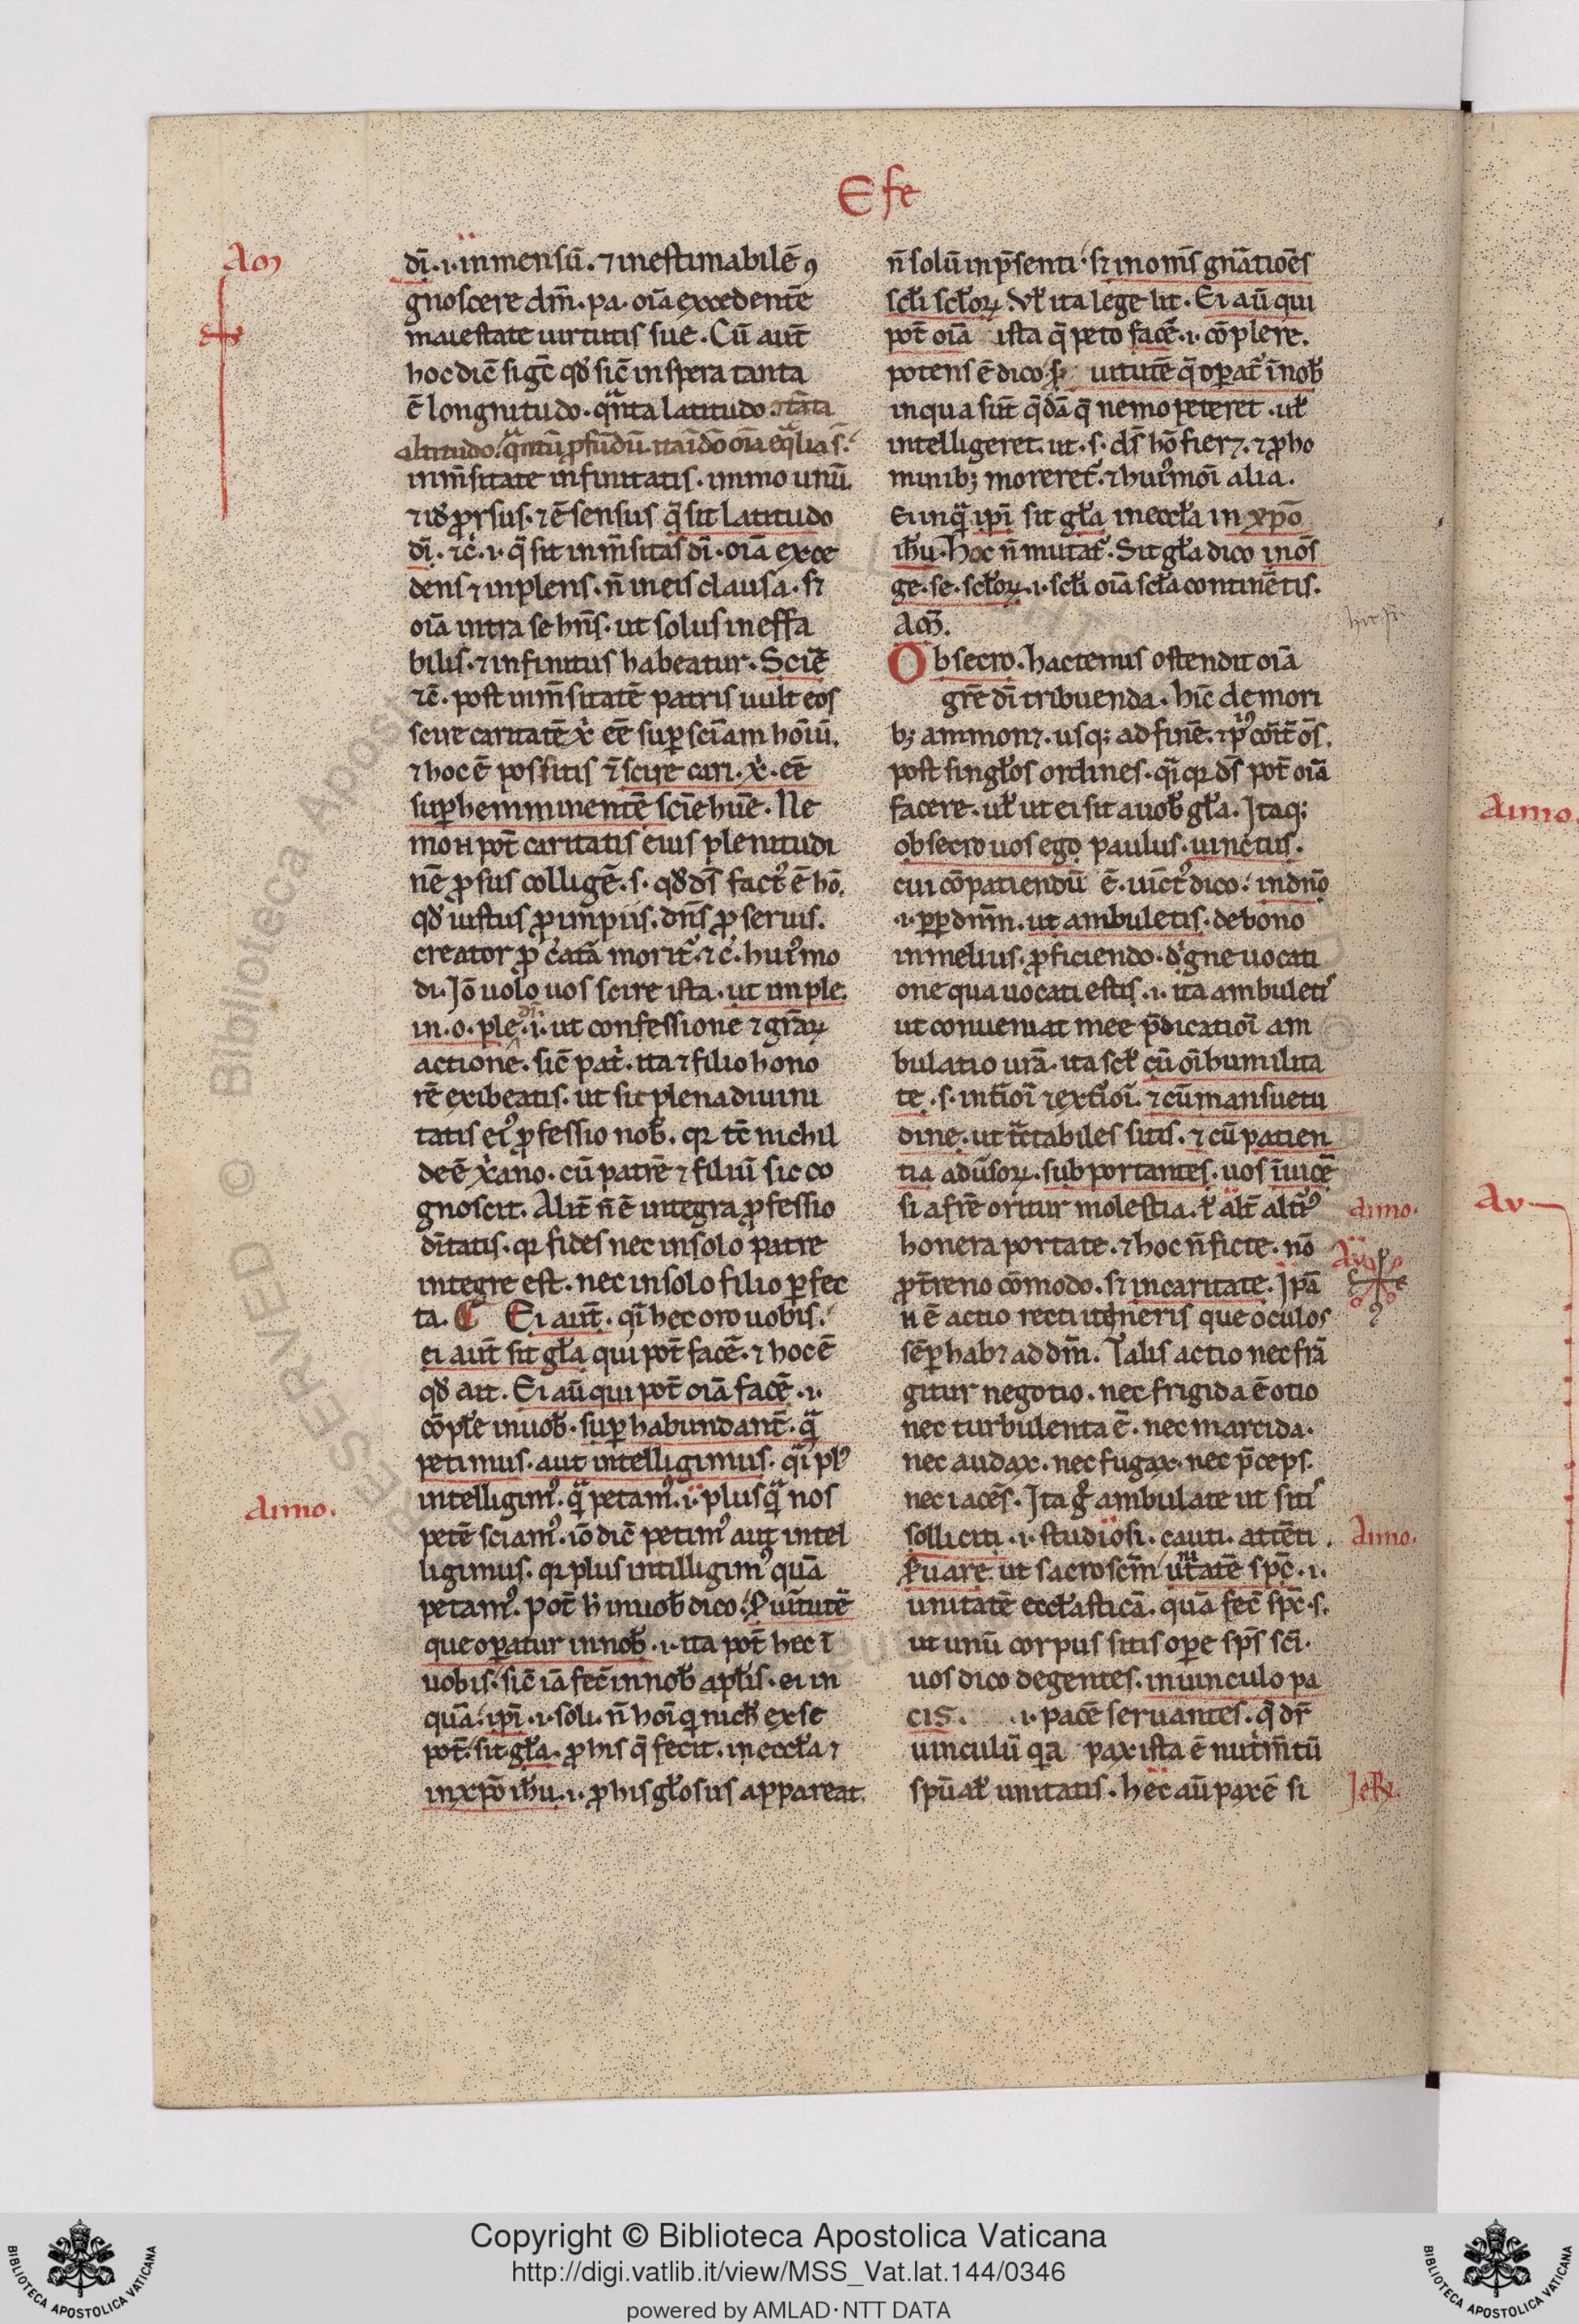 Efe
Am
dī .i. inmensū. ⁊ inestimabilē ꝯ
gnoscere dm̄. pa. oīa excedentē
maiestate uirtutis sue. Cū aut̄
hoc dic̄ sigc̄ qd̓ sic̄ in spera tanta
ē longnitudo. qͣnta latitudo. tāta
altitudo. qͣntū ꝓfūdū. ita ī dō oīa eqͣlia s̄.
inm̄sitate infinitatis. immo unū
⁊ id̓ ꝓrsus. ⁊ ē sensus q̄ sit latitudo
dī. ⁊c̄. i. q̄ sit inm̄sitas dī. oīa exce
dens ⁊ inplens. n̄ in eis clausa. sꝫ
oīa intra se hn̄s. ut solus ineffa
bilis. ⁊ infinitus habeatur. Scire
⁊c̄. post inm̄sitatē patris uult eos
scire caritatē xͥ eē suꝑ scīam hōiū.
⁊ hoc ē possitis ē scire cari. xͥ. eē
suꝑhemminentē scīe hūe. Ne
mo n̄ pot̄ caritatis eius plenitudi
nē ꝓsus colligē. s. qd̓ ds̄ factꝰ ē hō.
qd̓ iustus ꝓ impiis. dn̄s ꝓ seruis.
creator ꝓ c̓atā morit᷑. ⁊c̓. huiꝰmo
di. Iō uolo uos scire ista. ut imple.
in. o. ple. dī .i. ut confessione ⁊ grāꝝ
actionē. sic̄ pat̓. ita ⁊ filio hono
rē exibeatis. ut sit plena diuini
tatis eiꝰ ꝓfessio nob̓. qꝛ tc̄ nichil
deē xͥano. cū patrē ⁊ filiū sic co
gnoscit. Alit̄ n̄ ē integra ꝓfessio
dītatis. qꝛ fides nec in solo patre
integre est. nec in solo filio ꝑfec
ta. ¶ Ei aut̄. qͥ hec oro uobis.
ei aut̄ sit gl̓a qui pot̄ facē. ⁊ hoc ē
qd̓ ait. Ei aū qui pot̄ oīa facē .i.
cōple in uob̓. suꝑhabundant̄. qͣ̄
petimus. aut intelligimus. qͥ plꝰ
aimo.
intelligimꝰ. qͣ̄ petamꝰ. i. plusqͣ̄ nos
petē sciamꝰ. iō dic̄ petimꝰ aut intel
ligimus. qꝛ plus intilligimꝰ quā
petamꝰ. pot̄ h̓ in uob̓ dico. ẜ uirtutē
que oꝑatur in nob̓ .i. ita pot̄ hec ī
uobis. sic̄ iā fec̄ in nob̓ apl̓is. ei in
quā. ipī .i. soli. n̄ hoī qͥ nich̓ ex se
pot̄. sit gl̓a. ꝓ his q̄ fecit. in eccl̓a ⁊
in xpō ih̓u .i. ꝓ his gl̓osus appareat.
n̄ solū in p̄senti. sꝫ in oms̄ gnātioēs
scl̓i scl̓oꝝ. Vl̓ ita lege lit̄. Ei aū qui
pot̄ oīa ista q̄ peto facē .i. cōplere.
potens ē dico ẜ uirtutē q̄ oꝑat᷑ ī nob̓
in qua sūt q̄dā q̄ nemo peteret. ul̓
intelligeret. ut. s. ds̄ hō fierꝫ. ⁊ ꝓ ho
minibꝫ moreret᷑. ⁊ huiꝰmoī alia.
Ei inqͣ̄ ipī sit gl̓a in eccl̓a in xpō
ih̓u. hoc n̄ mutat᷑. Sit gl̓a dico in os̄
ge. se. scl̓oꝝ .i. scl̓i oīa scl̓a continētis.
Am̄.
Obsecro. hactenus ostendit oīa
grē dī tribuenda. hic̄ de mori
bꝫ ammonꝫ. usqꝫ ad finē. ⁊ pͥꝰ cōit̄ os̄.
post singl̓os ordines. qͥ qꝛ ds̄ pot̄ oīa
facere. ul̓ ut ei sit a uob̓ gl̓a. Itaqꝫ
obsecro uos ego paulus. uinctus.
cui cōpatiendū ē. uīctꝰ dico. in dn̄o
.i. ꝓꝑ dnm̄. ut ambuletis. de bono
in melius. ꝓficiendo. dͥgne uocati
one qua uocati estis .i. ita ambuletis
ut conueniat mee p̄dicatioī am
bulatio ur̄a. ita scl̓ cū oī humilita
te. s. int̄ioī ⁊ ext̄ioī. ⁊ cū mansuetu
dine. ut tͣctabiles sitis. ⁊ cū patien
tia adūsoꝝ. subportantes. uos īuicē
si a frē oritur molestia. ł alt̄ alt̄iꝰ
aimo.
honera portate. ⁊ hoc n̄ ficte. nō
Av
ꝓ t̄reno cōmodo. sꝫ in caritate. Ipā
n̄ ē actio recti itineris que oculos
sēꝑ habꝫ ad dm̄. Talis actio nec frā
gitur negotio. nec frigida ē otio
nec turbulenta ē. nec marcida.
nec audax. nec fugax. nec p̄ceps.
nec iacēs. Ita gͦ ambulate ut sitis
solliciti .i. studiosi. cauti. attēti.
aimo.
ẜuare. ut sacroscm̄ unitatē spc̄ .i.
unitatē eccl̓asticā. quā fec̄ spc̄. s.
ut unū corpus sitis oꝑe sps̄ scī.
uos dico degentes. in uinculo pa
cis. .i. pacē seruantes. q̄ dr̄
uinculū qͥa pax ista ē nutͥm̄tū
spūal̓ unitatis. hec aū pax ē si
JeR.
aimo.
Av
Copyright © Biblioteca Apostolica Vaticana
http://digi.vatlib.it/view/MSS_Vat.lat.144/0346
powered by AMLAD·NTT DATA
BIBLIOTECA APOSTOLICA VATICANA
BIBLIOTECA APOSTOLICA VATICANA